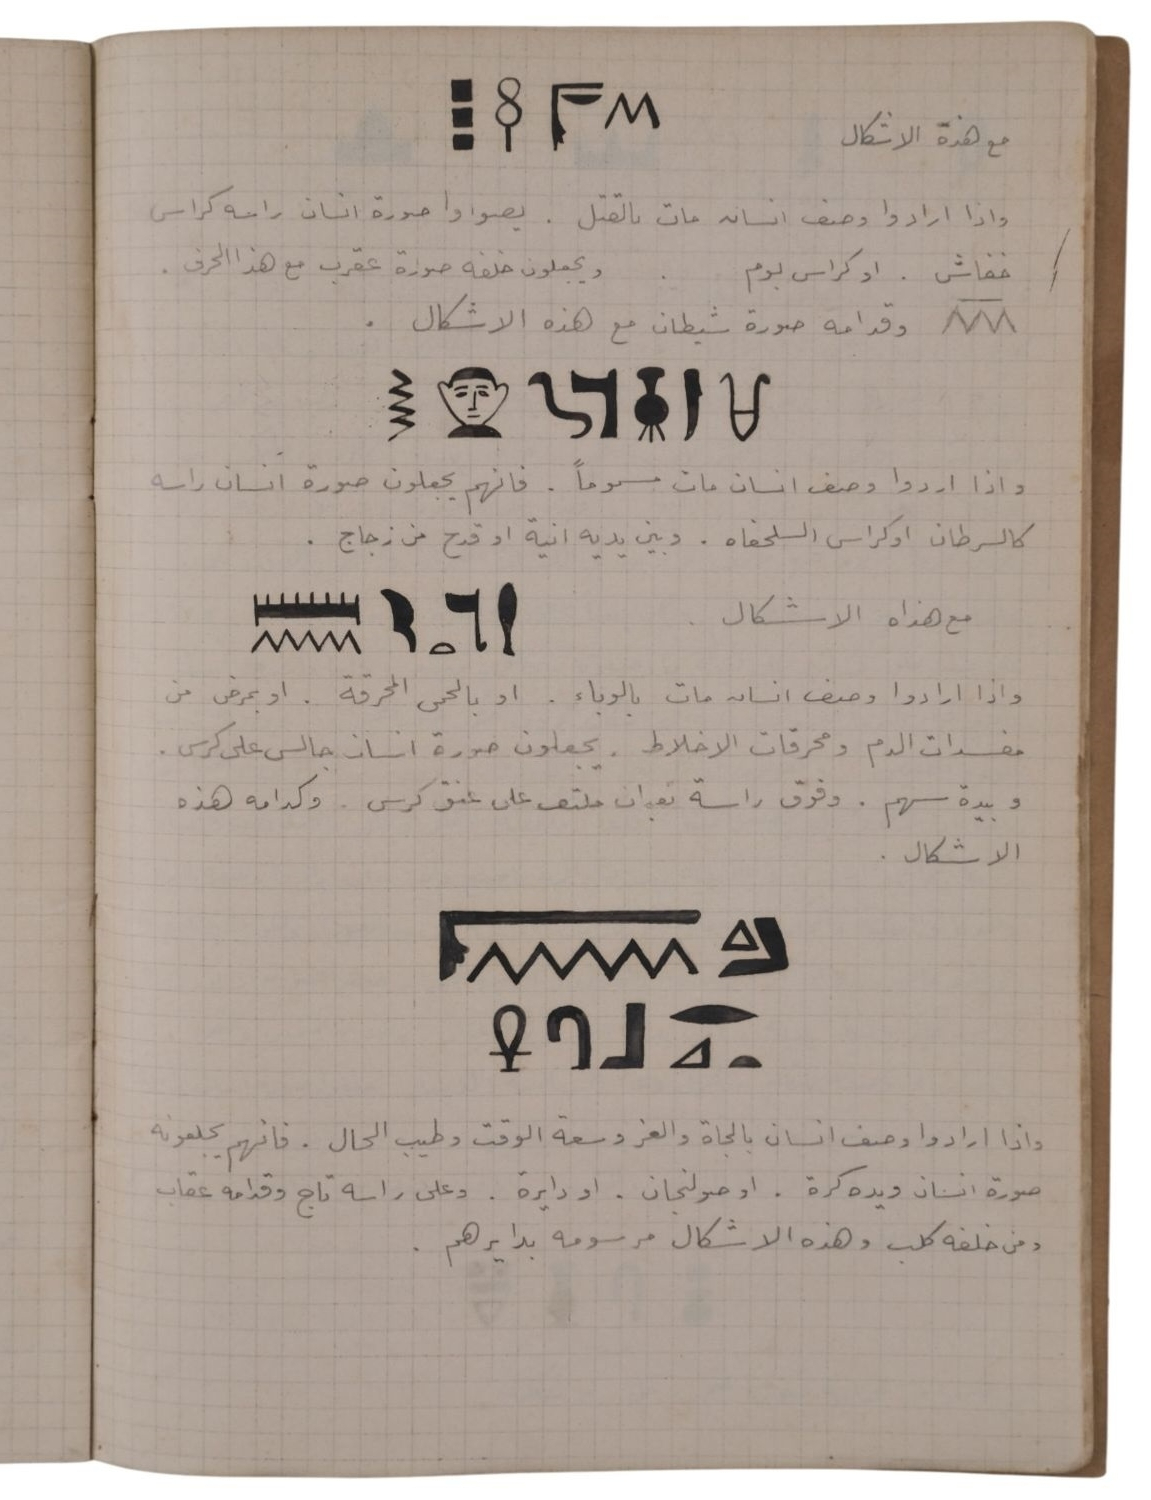 مع هذة الاشكال
واذا ارادوا وصف انسان مات بالقتل . يصواوا صورة انسان راسه كراس
خفاش . او كراس بوم . ويجعلون خلفه صورة عقرب مع هذا الحرف .
وقدامه صورة شيطان مع هذه الاشكال .
واذا اردوا وصف انسان مات مسموماً . فانهم يجعلون صورة أنسان راسه
كالسرطان اوكراس السلحفاه . وبين يديه انية او قدح من زجاج .
مع هذاه الاشكال .
واذا ارادوا وصف انسان مات بالوباء . او بالحمى المحرقة . او بمرض من
مفسدات الدم ومحرقات الاخلاط . يجعلون صورة انسان جالس على كرسى .
و بيدة سهم . وفوق راسة ثعبان ملتف على عنق كرسى . وكدامه هذه
الاشكال .
واذا ارادوا وصف انسان بالجاة والعز وسعة الوقت وطيب الحال . فانهم يجلعونه
صورة انسان وبيده كرة . او صولنجان . او دايرة . وعلى راسه تاج وقدامه عقاب
ومن خلفه كلب وهذه الاشكال مرسومه بدايرهم .